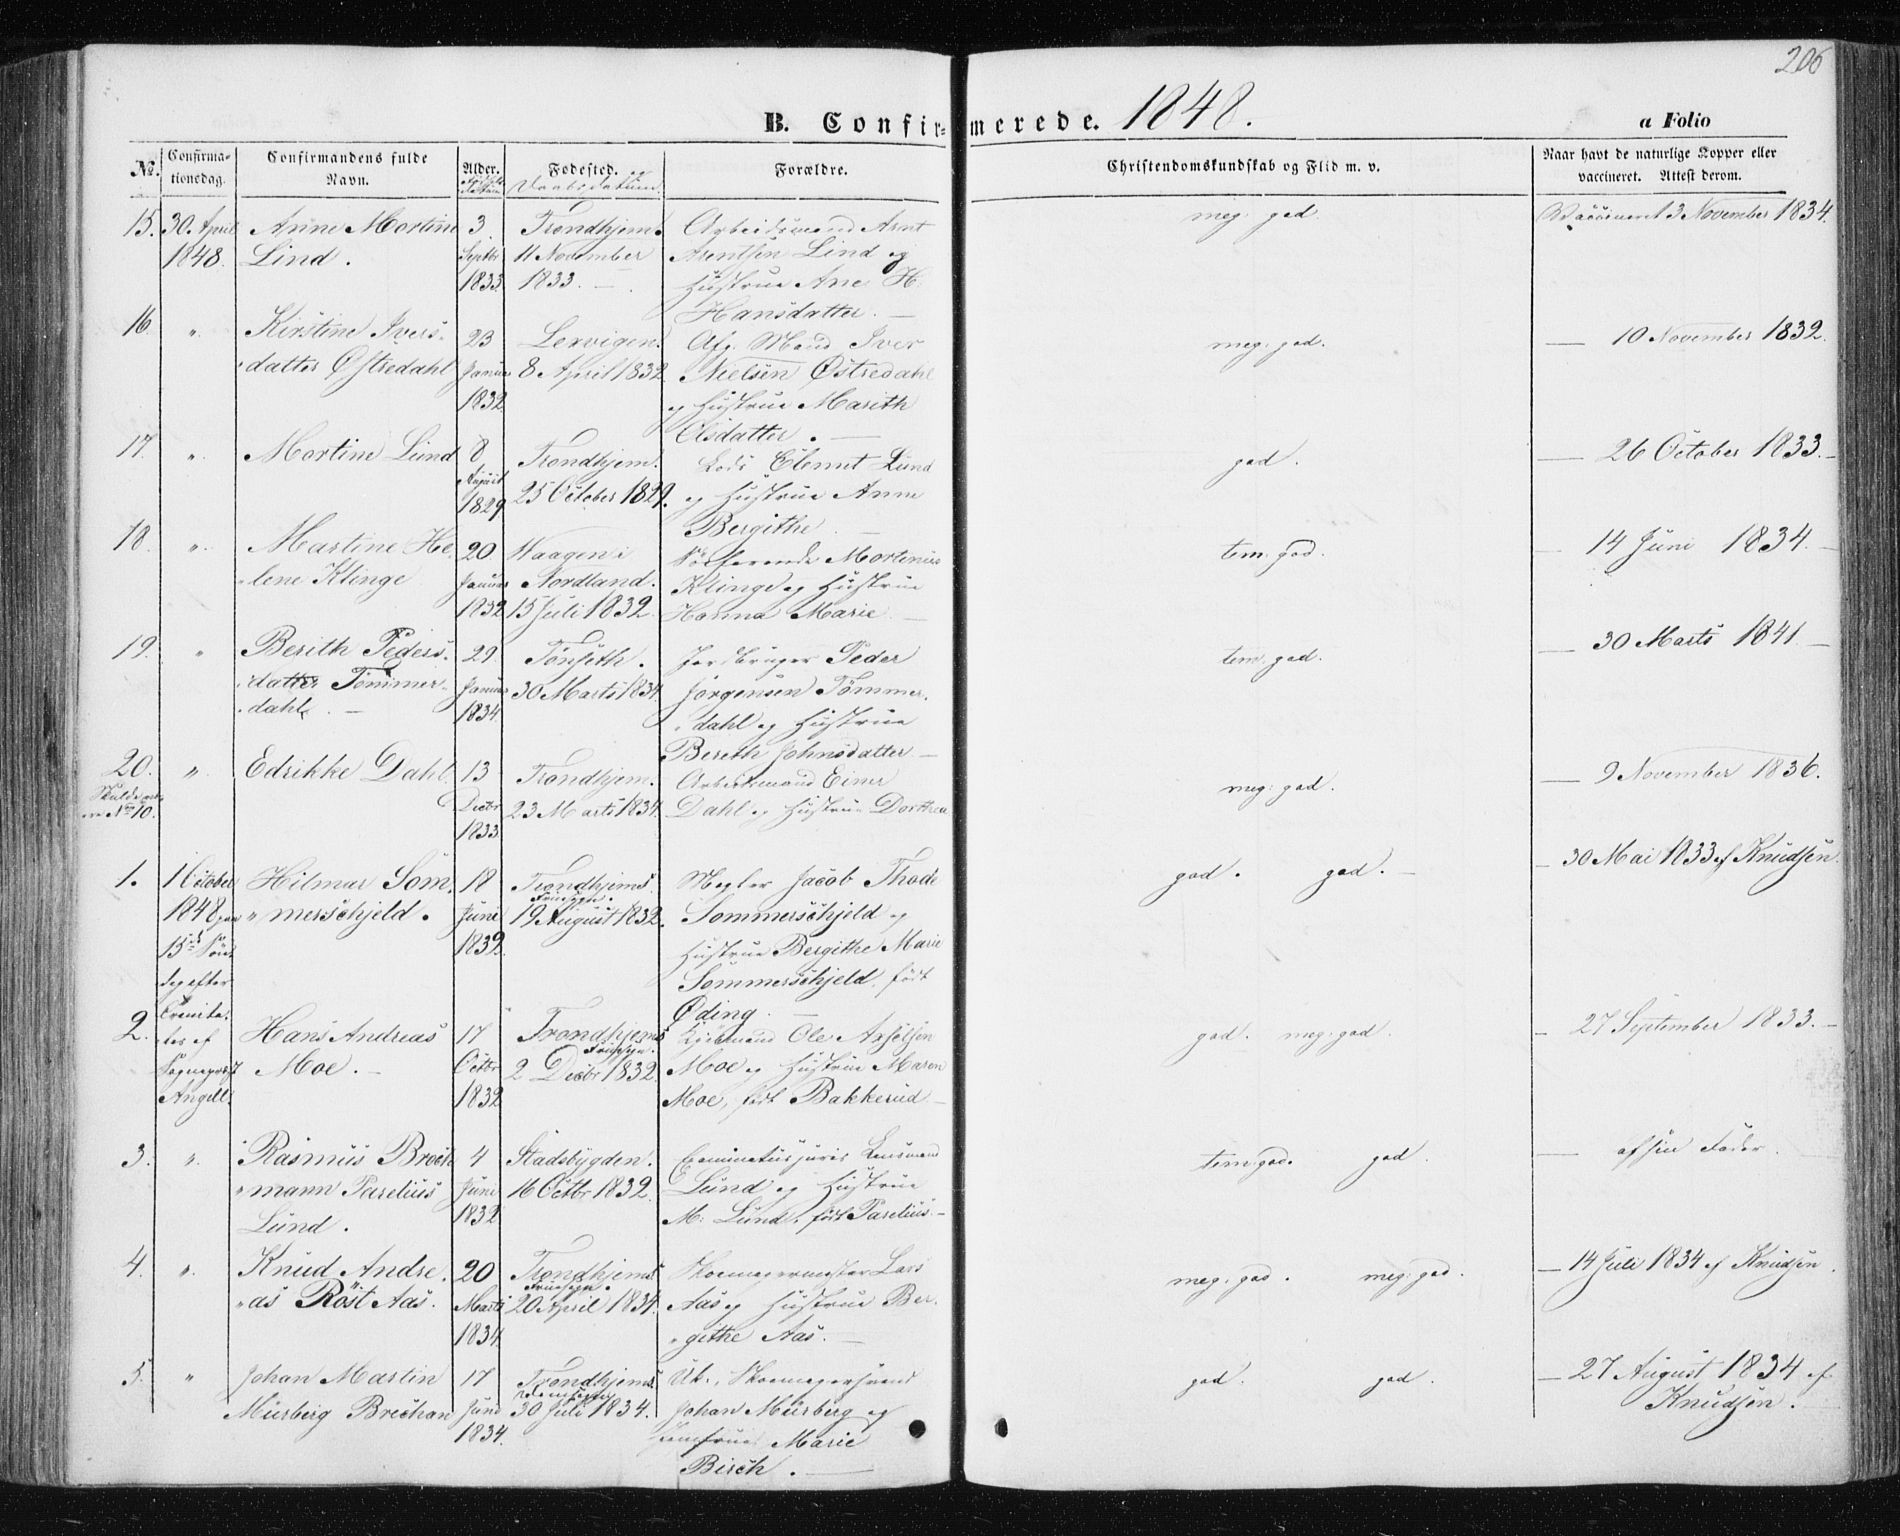 206
B. Confirmerede. 1848.
a Folio
No. Confirmationsdag. Confirmandens fulde Navn. Alder. Fødested. og Daabsdatum. Forældre. Christendomskundskab og Flid m. v. Naar havt de naturlige Kopper eller vaccineret. Attest derom.
15. 30 April Anne Martine 3 Trondhjem. Arbeidsmand Arnt meg: god. Vaccineret 3 November 1834.
1848. Lind. Septbr 11 November Arentsen Lind og
1833. 1833. Hustrue Ane H.
Hansdatter.
16. " Kirstine Ivers- 23 Lexvigen. Afg. Mand Iver meg: god. — 10 November 1832.
datter Østredahl Januar 8 April 1832 Nielsen Østredahl
1832 og Hustrue Marith
Olsdatter.
17. " Martine Lund 8 Trondhjem. Lods Clemet Lund god. — 26 October 1833.
August 25 October 1829. og Hustrue Anne
1829 Bergithe
18. " Martine He- 20 Waagen i Søefarende Mortinius tem: god. — 14 Juni 1834.
lene Klinge Januar Nordland. Klinge og Hustrue
1832 15 Juli 1832. Hanna Marie
19. " Berith Peders- 29 Tønseth. Jordbruger Peder tem: god. — 30 Marts 1841.
datter Tømmer- Januar 30 Marts 1834. Jørgensen Tømmer-
dahl. 1834. dahl og Hustrue
Bereth Johnsdatter
20. " Edrikke Dahl 13 Trondhjem. Arbeidsmand Einer meg: god. — 9 November 1836.
Skulde No 10. Decbr 23 Marts 1834. Dahl og Hustrue Dorthea
1833
1. 1 October Hilmar Som- 18 Trondhjems Megler Jacob Thode god. god. — 30 Mai 1833 af Knudsen.
1848 merschjeld. Juni Fruesogn. 19 August 1832. Sommerschjeld og
15de Søn- 1832. Hustrue Bergithe Marie
dag efter Sommerschjeld, født
Trinita- Øding.
2. tes af Hans Andreas 17 Trondhjems Kjøbmand Ole Axelsen god. meg: god. — 27 September 1833.
Sognepræst Moe. Octbr Fruesogn. 2 Decbr 1832. Moe og Hustrue Maren
Angell. 1832 Moe, født Bakkerud
3. " Rasmus Broch- 4 Stadsbygden. Examinatus juris Lensmand tem: god. god. — af sin Fader.
mann Parelius Juni 16 Octbr 1832. Lund og Hustrue
Lund. 1832 M: Lund, født Parelius.
4. " Knud Andre- 20 Trondhjems Skomagermester Lars meg: god. meg: god. — 14 Juli 1834 af Knudsen.
as Röst Aas. Marts Fruesogn. 20 April 1834. Aas og Hustrue Ber-
1834. githe Aas.
5. " Johan Martin 17 Trondhjems Skomagersvend god. god. — 27 August 1834 af
Mürberg Brechan Juni Domsogn 30 Juli 1834. Johan Mürberg og Knudsen.
1834. Marie
Birch.